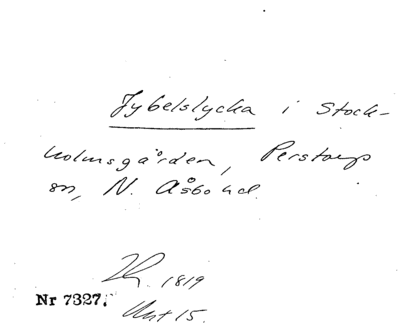 Jybelslycka i Stock-
holmsgården, Perstorps
sn, N. Åsbo hd.
1819
Nr 7327.
15.